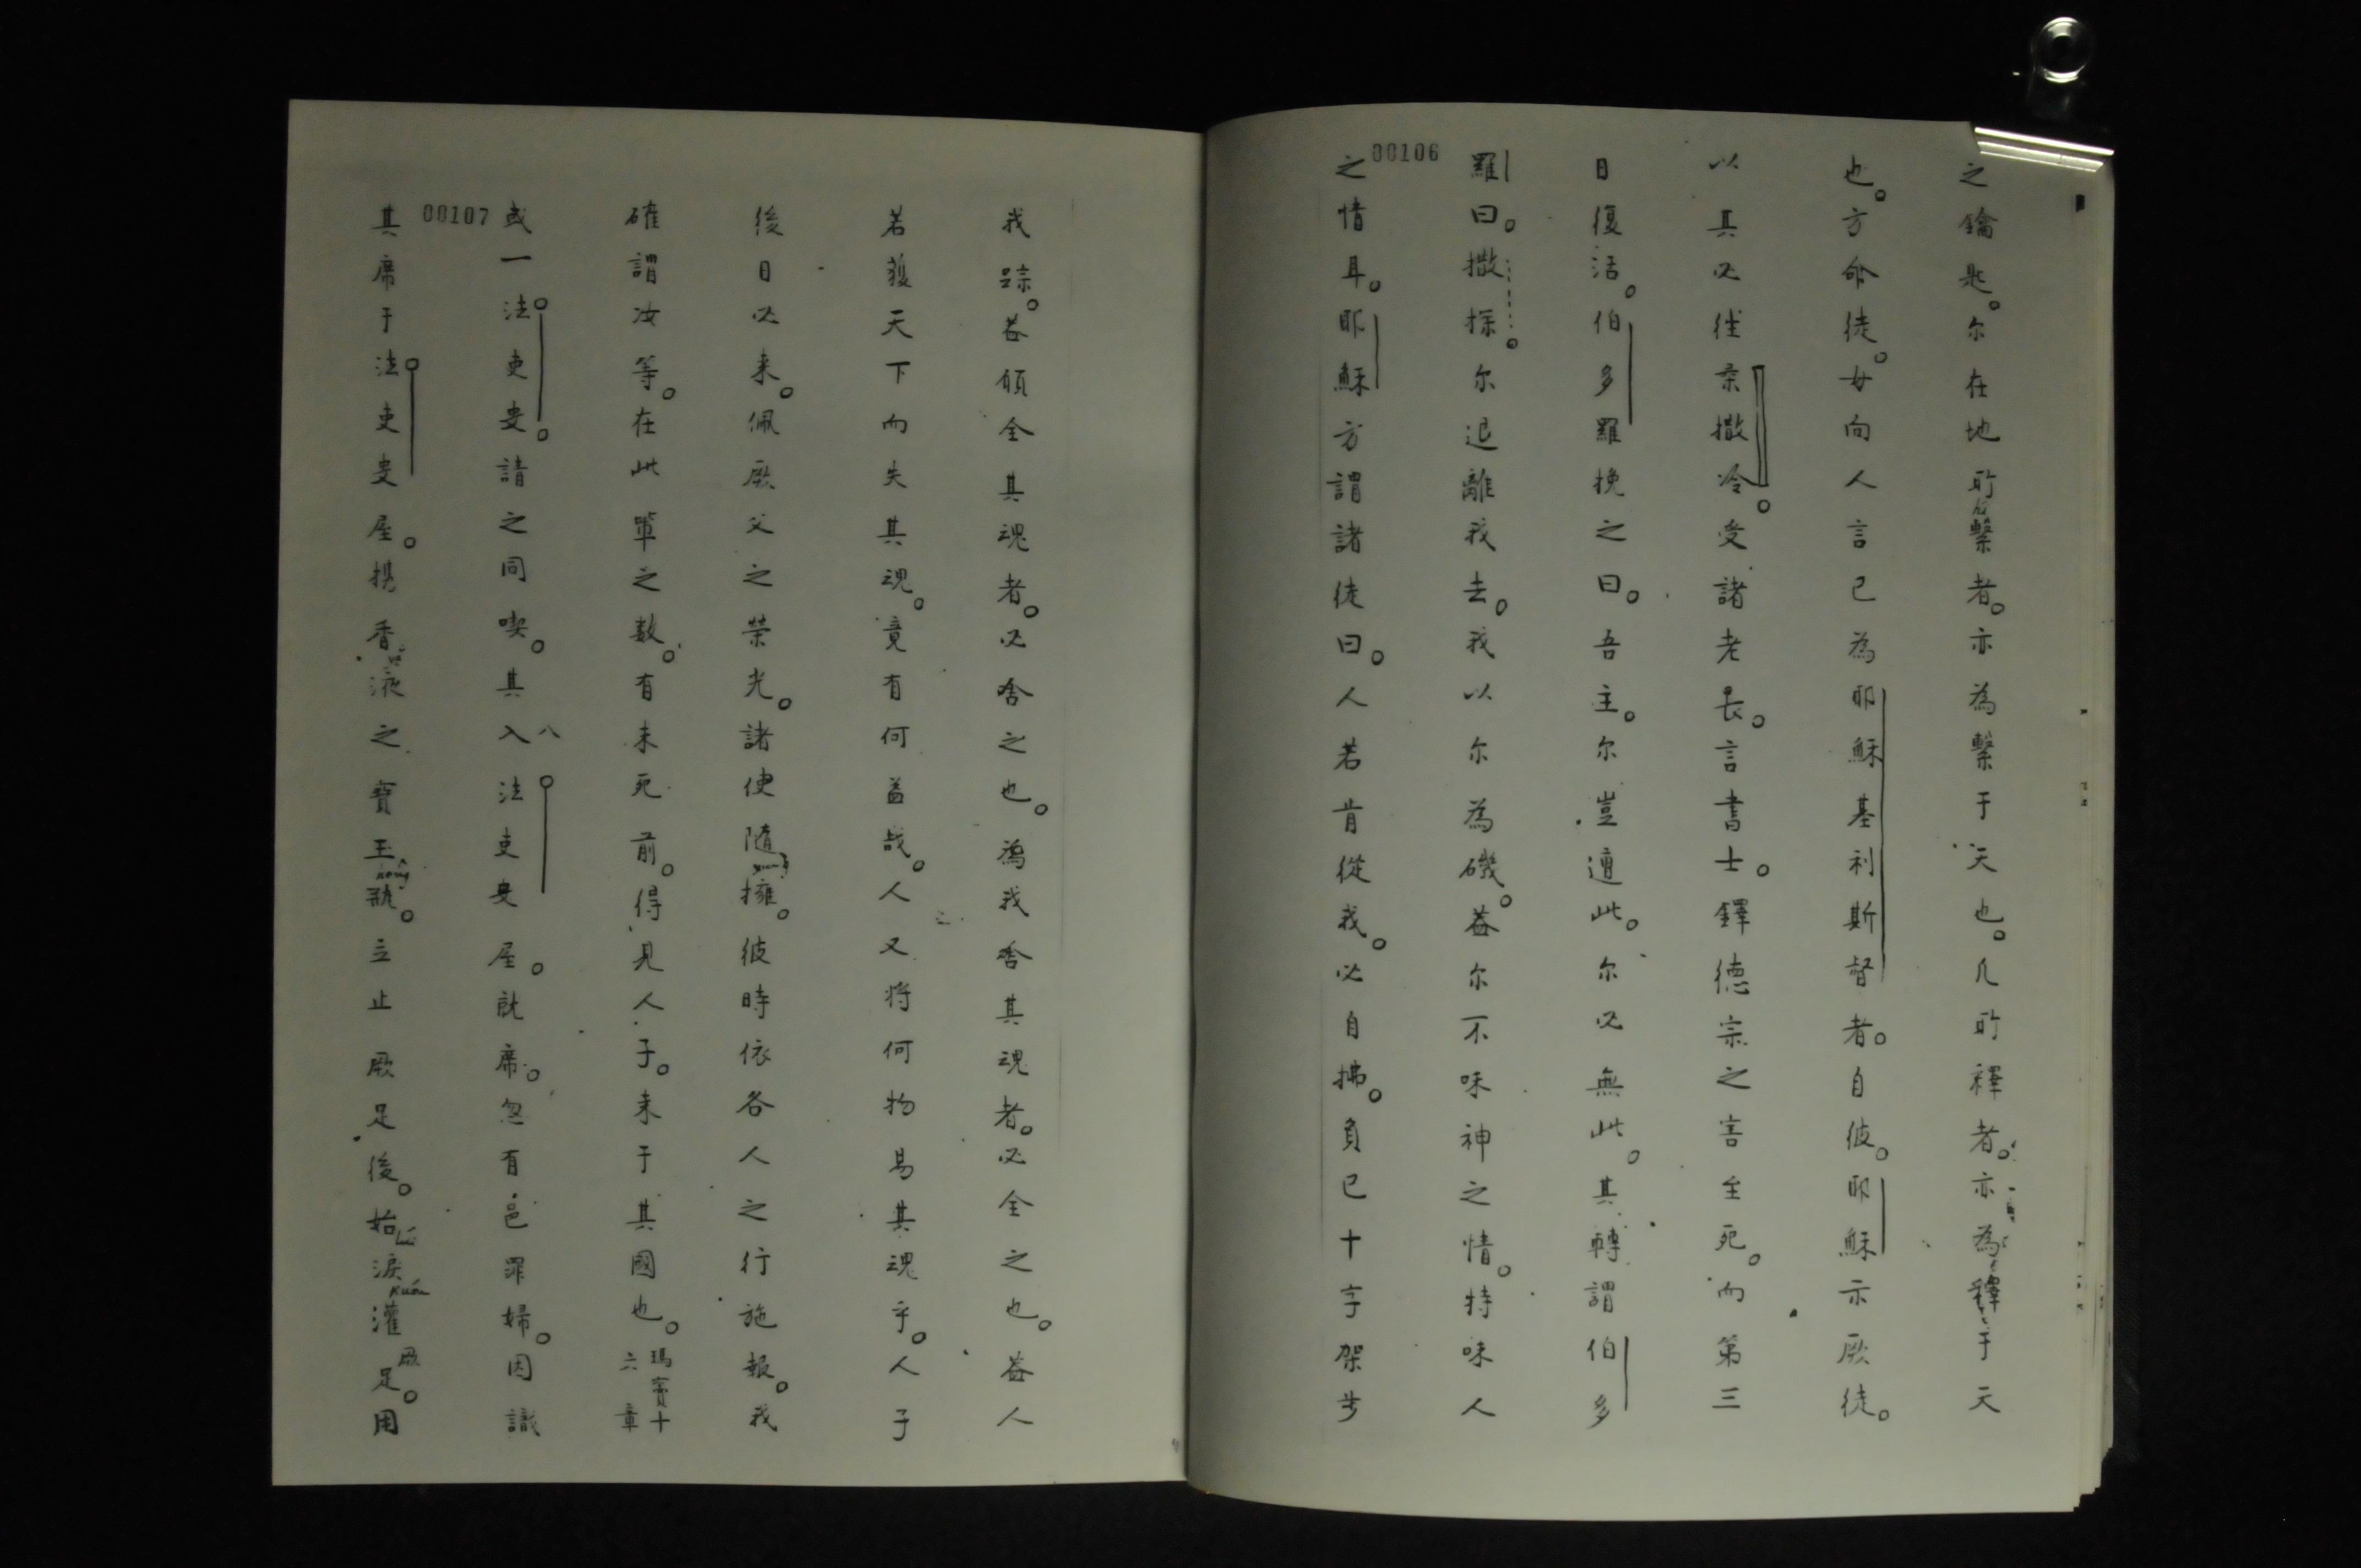 之鑰匙。尔在地所繫者。亦為繫于天也。凡所釋者。亦為釋于天
也。方命徒。女向人言已為耶穌基利斯督者。自彼。耶穌示厥徒。
以其必徃柔撒冷。受諸老長。言書士。鐸德宗之害至死。而第三
日復活。伯多羅挽之曰。吾主。尔豈遭此。尔必無此。其轉謂伯多
羅曰。撒探。尔退離我去。我以尔為磯。葢尔不味神之情。特味人
之情耳。耶穌方謂諸徒曰。人若肯從我。必自拂。負己十字架步
00106
我踪。葢願全其魂者。必舍之也。為我舍其魂者。必全之也。葢人
若獲天下而失其魂。竟有何益哉。人又将何物易其魂乎。人子
後日必来。佩厥父之荣光。諸使隨擁。彼時依各人之行施報。我
確謂汝等。在此軍之数。有未死前。得見人子。来于其國也。瑪竇十六章
或一法吏叟。請之同喫。其入法吏叟屋。就席。忽有邑罪婦。因識
00107
其席于法吏叟屋。携香液之寶玉瓶。立止厥足後。始淚灌厥足。用